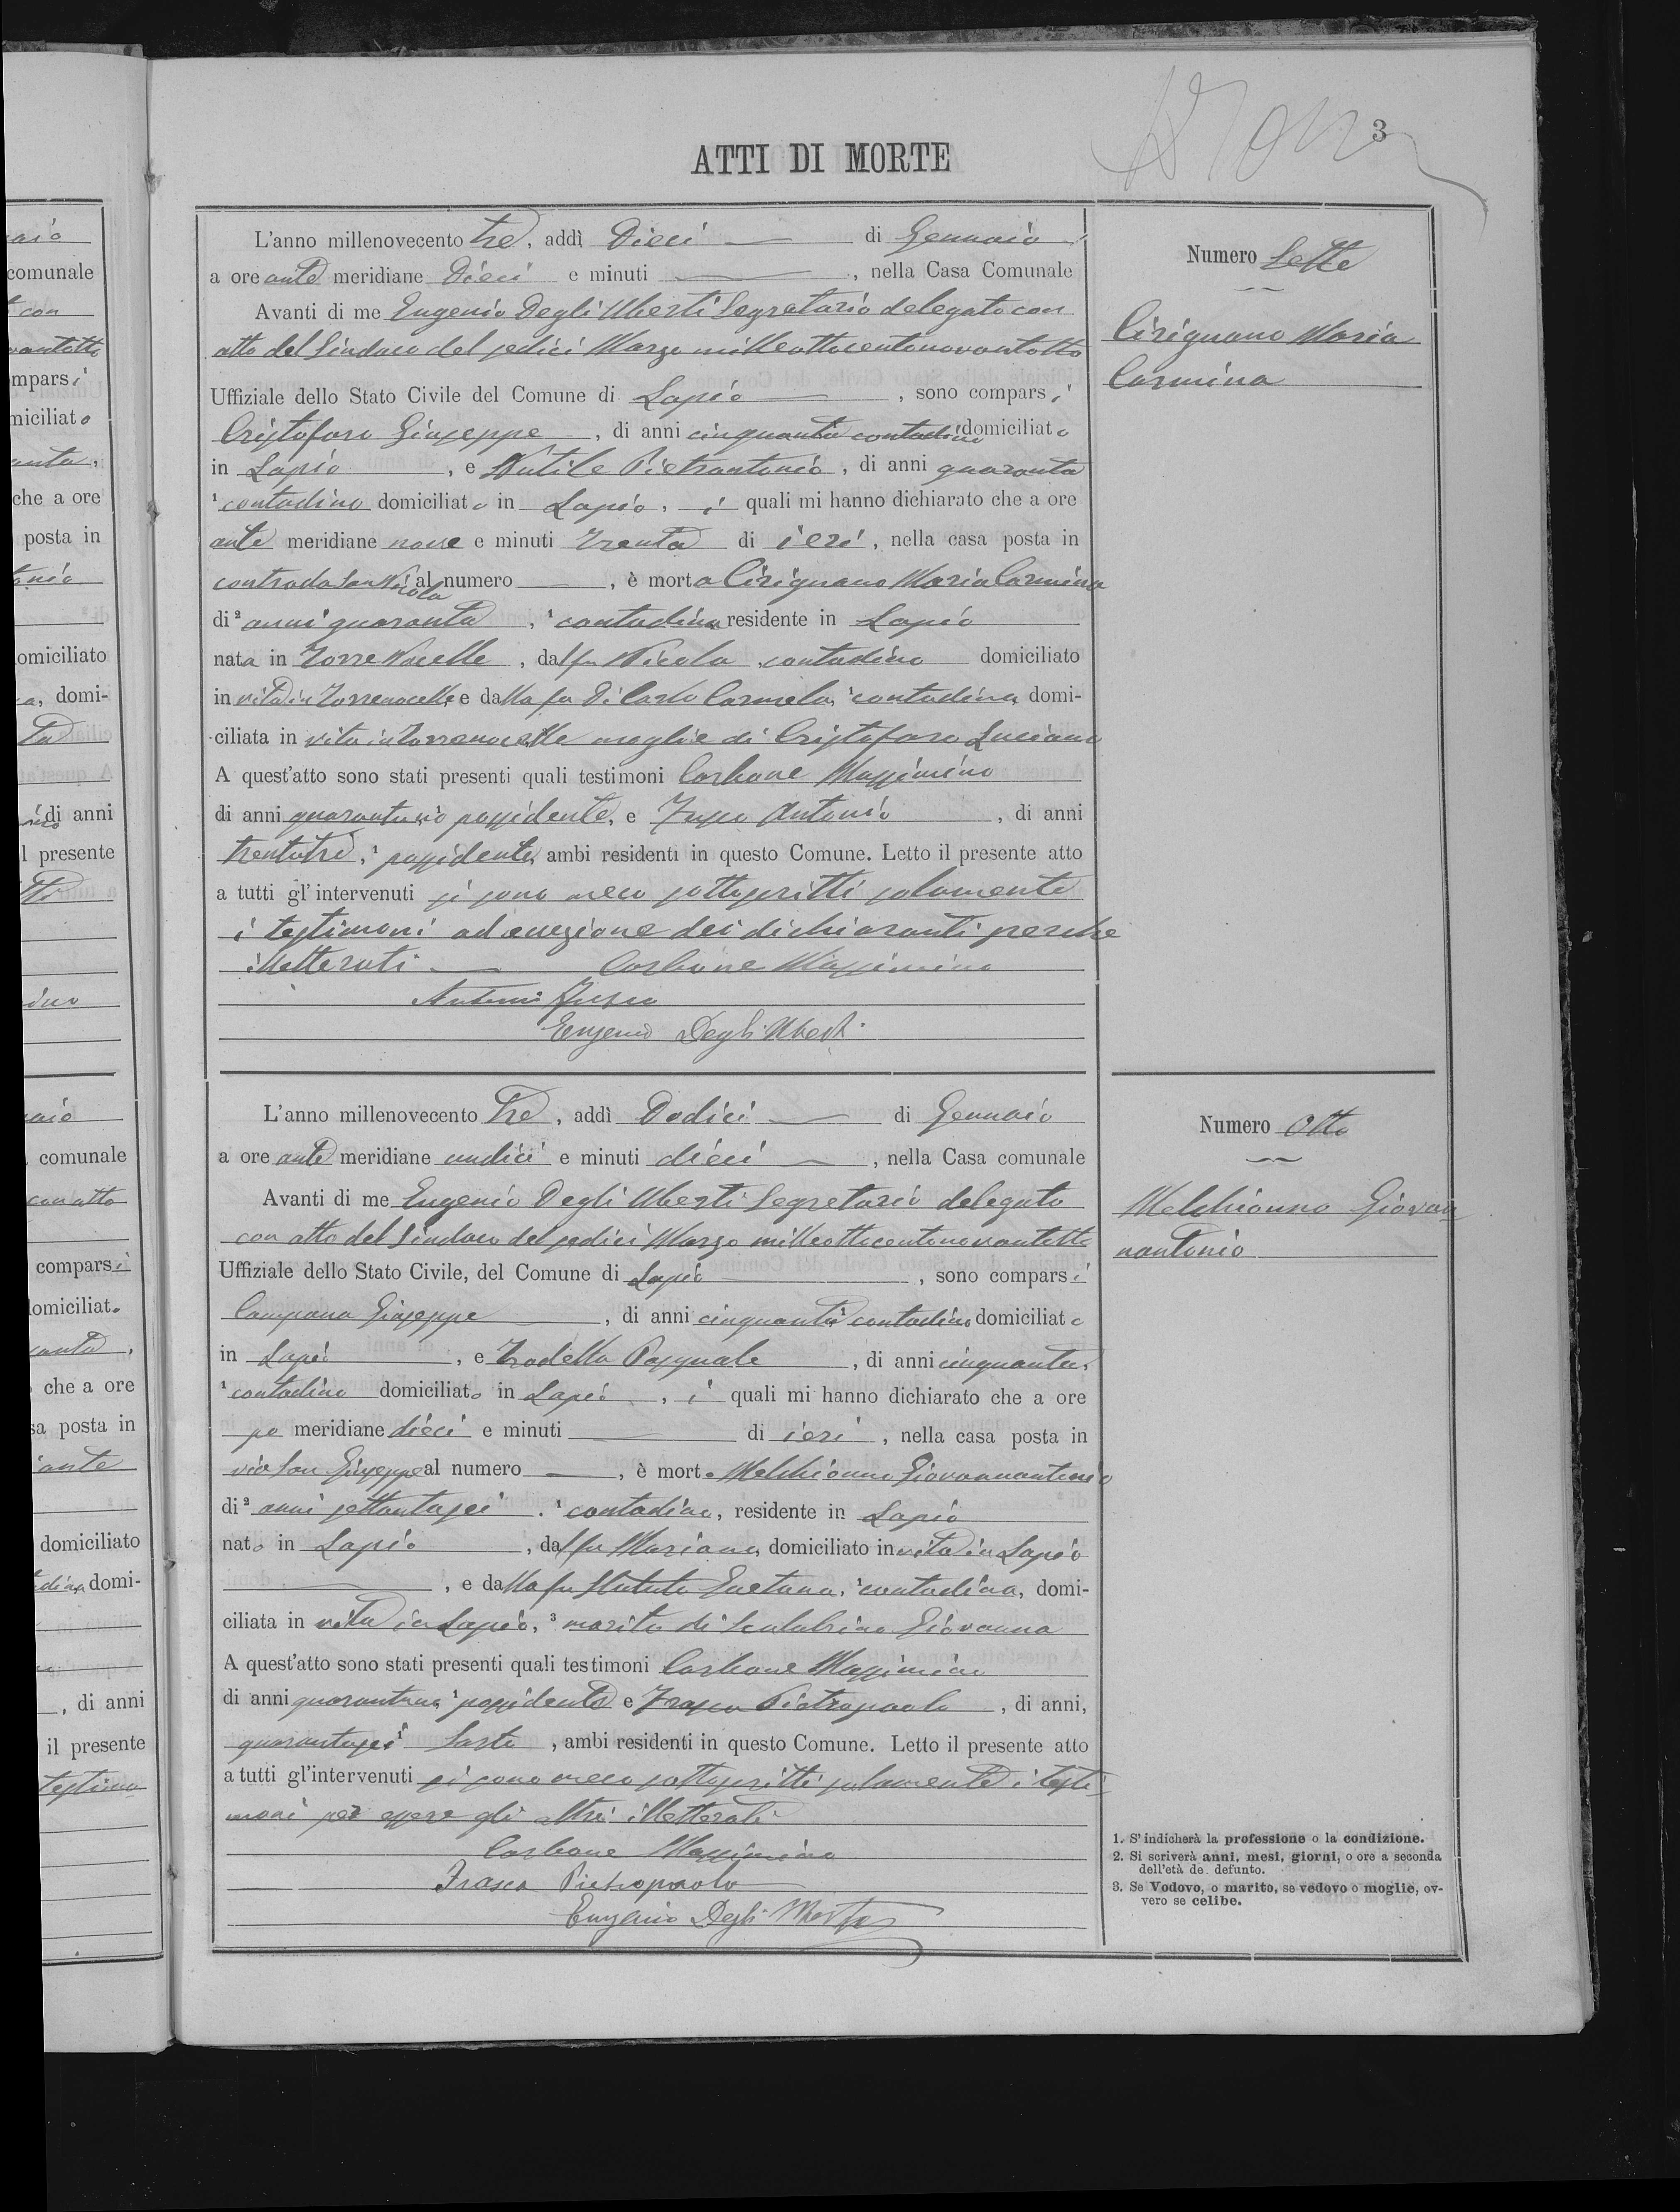 3
ATTI DI MORTE
L'anno millenovecento tre, addì Dieci di Gennaio
a ore ante meridiane Dieci e minuti , nella Casa Comunale
Avanti di me Eugenio Degli Uberti Segretario delegato con
atto del Sindaco del sedici Marzo milleottocentonovantotto
Uffiziale dello Stato Civile del Comune di Lapio , sono comparsi
Cristofaro Giuseppe , di anni cinquanta contadino domiciliato
in Lapio , e Nutile Pietrantonio , di anni quaranta
1 contadino domiciliato in Lapio, i quali mi hanno dichiarato che a ore
ante meridiane nove e minuti trenta di ieri, nella casa posta in
contrada San Nicola al numero , è morta Cirignano Maria Carmina
di 2 anni quaranta , 1 contadina residente in Lapio
nata in Torre Nocelle , dal fu Nicola , contadino domiciliato
in vita in Torrenocelle e dalla fu Di Carlo Carmela, 1 contadina, domi-
ciliata in vita in Torrenocelle moglie di Cristofaro Luciano
A quest'atto sono stati presenti quali testimoni Carbone Massimino
di anni quarantuno 1 possidente, e Fusco Antonio , di anni
trentatre, 1 possidente, ambi residenti in questo Comune. Letto il presente atto
a tutti gl'intervenuti si sono meco sottoscritti solamente
i testimoni ad eccezione dei dichiaranti perche
illetterati Carbone Massimino
Antonio Fusco
Eugenio Degli Uberti
Numero Sette
Cirignano Maria
Carmina
L'anno millenovecento Tre, addì Dodici di Gennaio
a ore ante meridiane undici e minuti dieci , nella Casa comunale
Avanti di me Eugenio Degli Uberti Segretario delegato
con atto del Sindaco del sedici Marzo milleottocentonovantotto
Uffiziale dello Stato Civile, del Comune di Lapio , sono comparsi
Campana Giuseppe , di anni cinquanta 1 contadino domiciliato
in Lapio , e Pasquale , di anni cinquanta,
1 contadino domiciliato in Lapio , i quali mi hanno dichiarato che a ore
po meridiane dieci e minuti di ieri , nella casa posta in
via San Giuseppe al numero , è morto Melchionno Giovannantonio
di 2 anni settantasei . 1 contadino, residente in Lapio
nato in Lapio , dal fu Mariano, domiciliato in vita in Lapio
, e dalla fu Gaetana, 1 contadina, domi-
ciliata in vita in Lapio, 3 marito di Scalabrino Giovanna
A quest'atto sono stati presenti quali testimoni Carbone Massimino
di anni quarantuno, 1 possidente e Frasca Pietropaolo , di anni,
quarantasei 1 Sarto , ambi residenti in questo Comune. Letto il presente atto
a tutti gl'intervenuti si sono meco sottoscritti solamente i testi-
moni per essere gli altri illetterati
Carbone Massimino
Frasca Pietropaolo
Eugenio Degli Uberti
Numero Otto
Melchionno Giovan
nantonio
1. S'indicherà la professione o la condizione.
2. Si scriverà anni, mesi, giorni, o ore a seconda
dell'età de defunto.
3. Se Vedovo, o marito, se vedovo o moglie, ov-
vero se celibe.